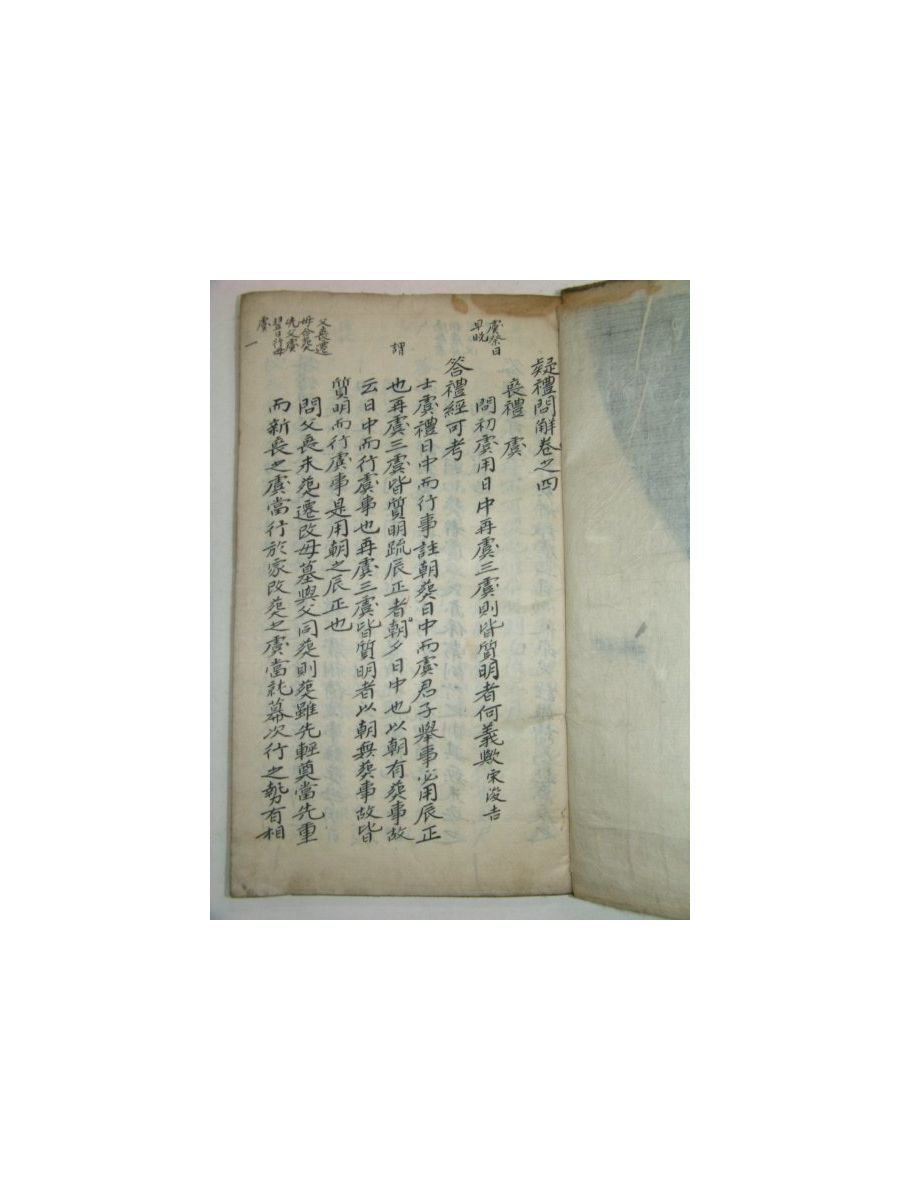 疑禮問解卷之四
喪禮 虞
虞祭日
早晩
問初虞用日中再虞三虞則皆質明者何義歟宋浚吉
答禮經可考
士虞禮日中而行事註朝葬日中而虞君子擧事必用辰正
謂
也再虞三虞皆質明疏辰正者朝夕日中也以朝有葬事故
云日中而行虞事也再虞三虞皆質明者以朝無葬事故皆
質明而行虞事是用朝之辰正也
父喪遷
母合葬
先父虞
翌日行母
虞
問父喪未葬遷改母墓與父同葬則葬雖先輕奠當先重
而新喪之虞當行於家改葬之虞當就幕次行之勢有相